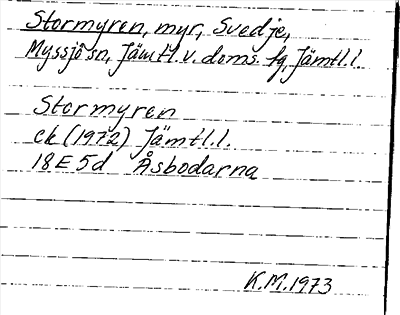 Stormyren, myr, Svedje,
Myssjö sn, Jämtl. v. doms. fg, Jämtl. l.
Stormyren
ek (1972) Jämtl. l.
18E 5d Åsbodarna
K.M. 1973